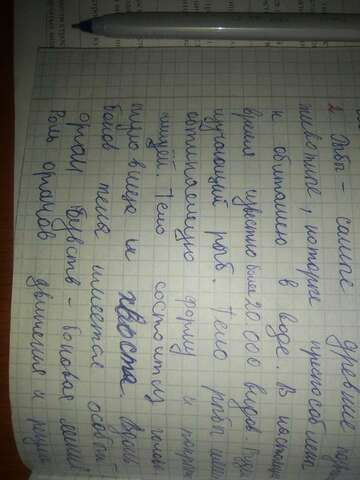 2. Рыбы - самые древние
животные, которые приспособлены
к обитанию в воде. В настоящее
время известно более 20 000 видов.
изучающий рыб. Тело рыбы
обтекаемую форму и покрыто
чешуёй. Тело состоит из головы
туловища и хвоста. Вдоль
боков тела имеется особый
орган чувств - боковая линия
Роль органов движения и